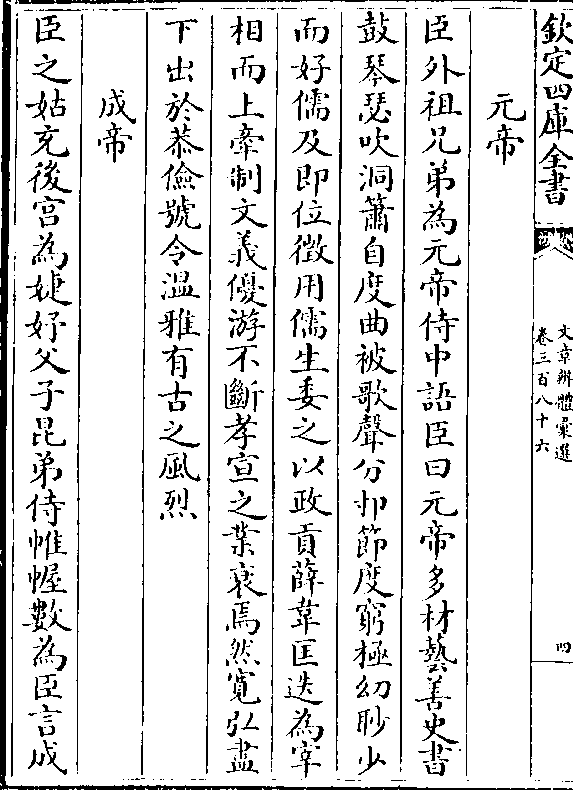 欽定四庫全書
文章辨體彙選
卷三百八十六
四
元帝
臣外祖兄弟為元帝侍中語臣曰元帝多材藝善史書
鼓琴瑟吹洞簫自度曲被歌聲分刌節度窮極幼眇少
而好儒及即位徵用儒生委之以政貢薛韋匡迭為宰
相而上牽制文義優游不斷孝宣之業衰焉然寛弘盡
下出於恭儉號令溫雅有古之風烈
成帝
臣之姑充後宫為婕妤父子昆弟侍帷幄數為臣言成